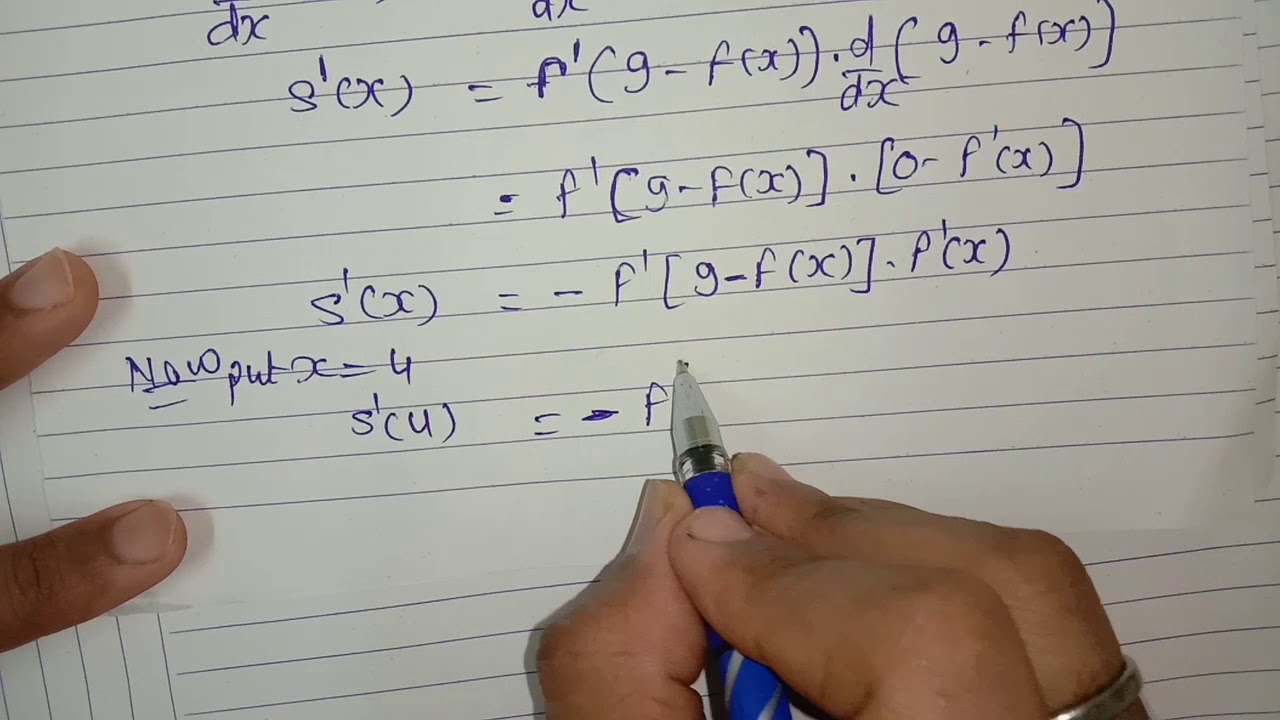 dx dx
s'(x) = f'(9-f(x)).d/dx(9-f(x)]
= f'[9-f(x)].[0-f'(x)]
s'(x) = -f'[9-f(x)].f'(x)
Now put x=4
s'(4) = -f